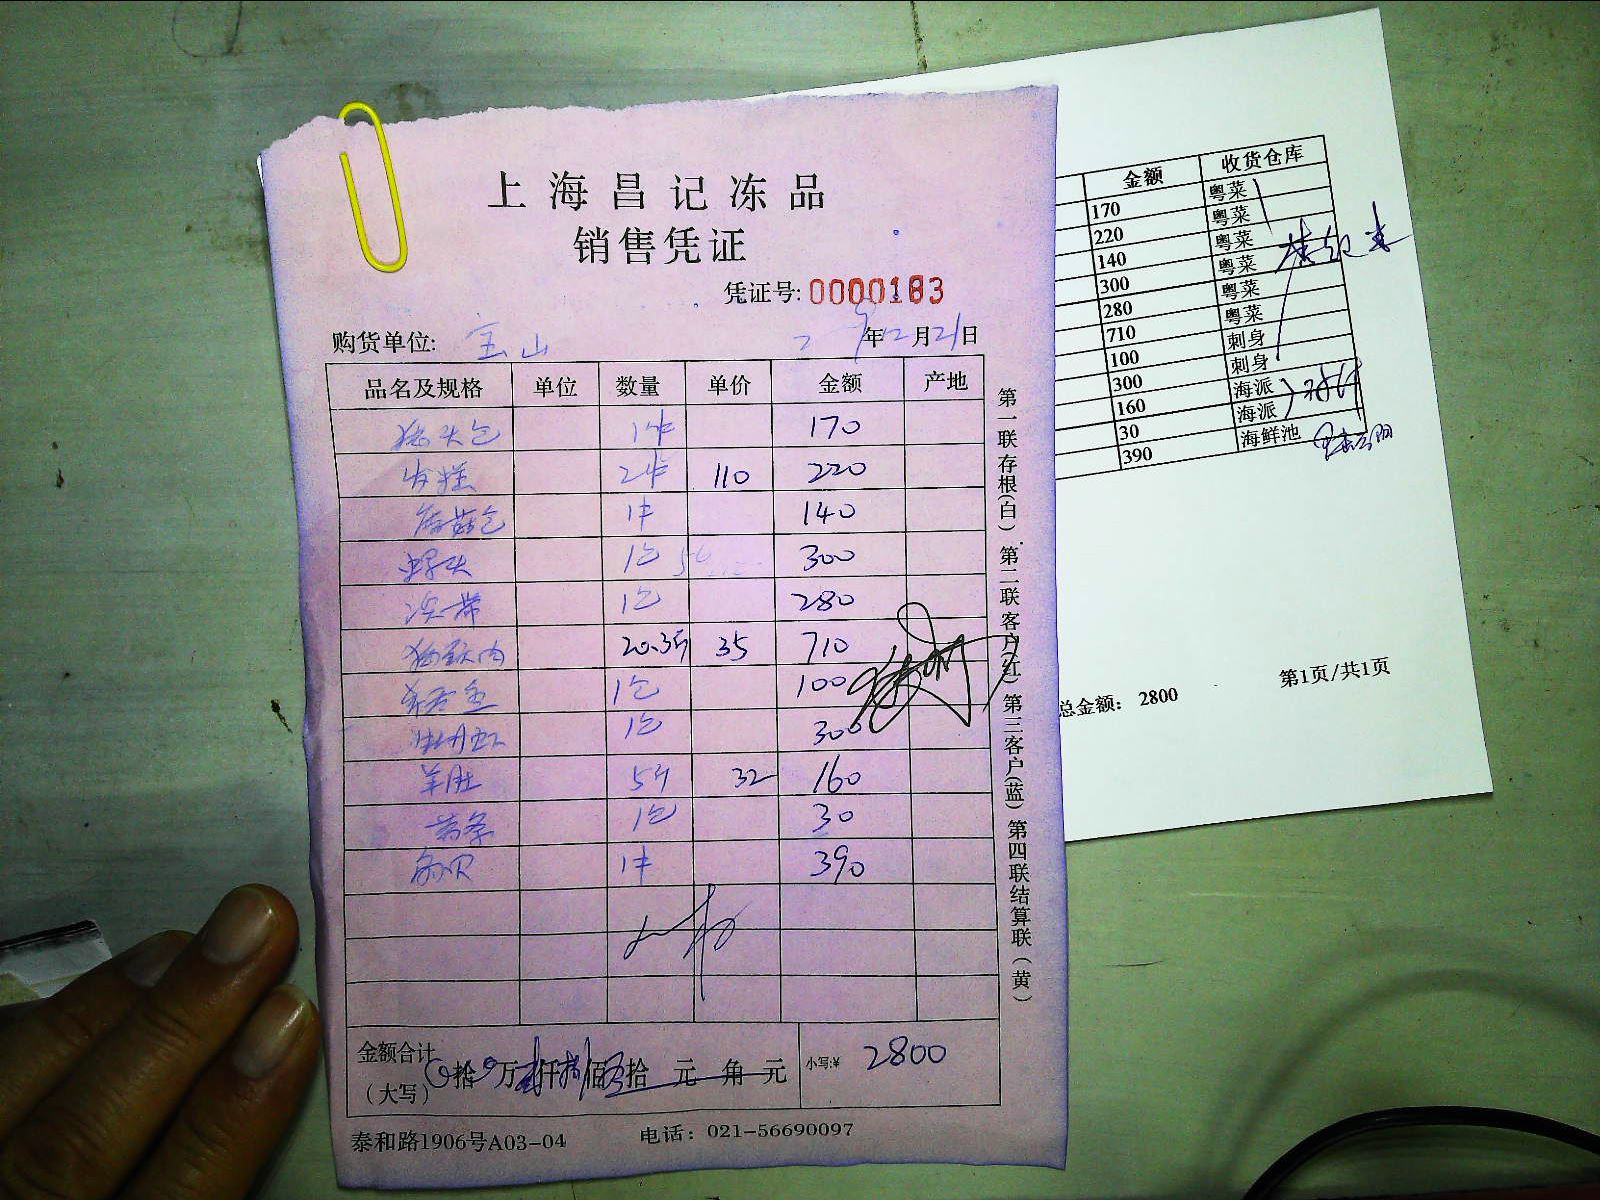 上海昌记冻品
销售凭证
凭证号: 0000183
购货单位: 宝山 年12月21日
品名及规格 单位 数量 单价 金额 产地
1件 170
发糕 2件 110 220
1件 140
螺头 1包 300
1包 280
20.3斤 35 710
1包 100
1包 300
羊肚 5斤 32 160
薯条 1包 30
1件 390
金额合计
(大写) 拾 万 仟 佰 拾 元 角 元 小写:¥ 2800
泰和路1906号A03-04 电话: 021-56690097
第一联存根(白) 第二联客户(红) 第三客户(蓝) 第四联结算联(黄)
金额 收货仓库
170 粤菜
220 粤菜
140 粤菜
300 粤菜
280 粤菜
710 粤菜
100 刺身
300 刺身
160 海派
30 海派
390 海鲜池
总金额: 2800 第1页/共1页